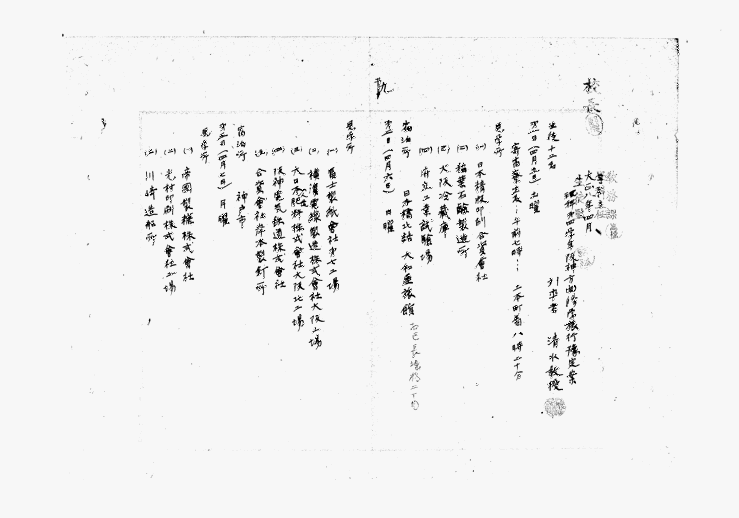 校長
大正八年四月
理科第四学年阪神方面修学旅行豫定案
引率者 清水教授
生徒十二名
第一日(四月五日)土曜
見学所
(一) 日本精版印刷合資會社
(二) 稲葉石鹸製造所
(三) 大阪冷蔵庫
(四) 府立工業試験場
宿泊所 日本橋北詰 大和屋旅館
第二日(四月六日)日曜
見学所
(一) 富士製紙會社第七工場
(二) 横濱電線製造株式會社大阪工場
(三) 大日本肥料株式會社大阪北工場
(四) 阪神電気鉄道株式會社
(五) 合資會社岸本製釘所
宿泊所 神戸市
第三日(四月七日)月曜
見学所
(一) 帝國製糖株式會社
(二) 光村印刷株式會社工場
(三) 川崎造船所